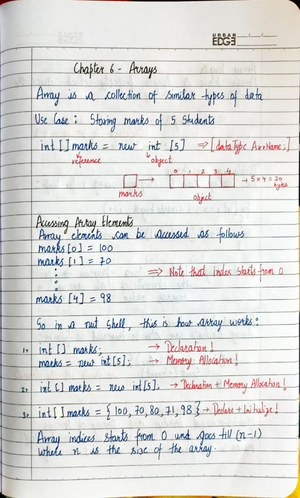 URBAN
EDGE
Chapter 6 - Arrays
Array is a collection of similar types of data
Use Case : Storing marks of 5 Students
int [ ] marks = new int [5] ⇒ [dataType ArrName;]
reference object
0 1 2 3 4
→ → 5 x 4 = 20
bytes
marks
object
Accessing Array Elements
Array elements can be accessed as follows
marks [0] = 100
marks [1] = 70
⇒ Note that index starts from 0
marks [4] = 98
So in a nut shell, this is how array works:
1. int [ ] marks; → Declaration!
marks = new int [5]; → Memory Allocation!
2. int [ ] marks = new int [5]; → Declaration + Memory Allocation!
3. int [ ] marks = {100, 70, 80, 71, 98} → Declare + Initialize!
Array indices starts from 0 and goes till (n-1)
where n is the size of the array.